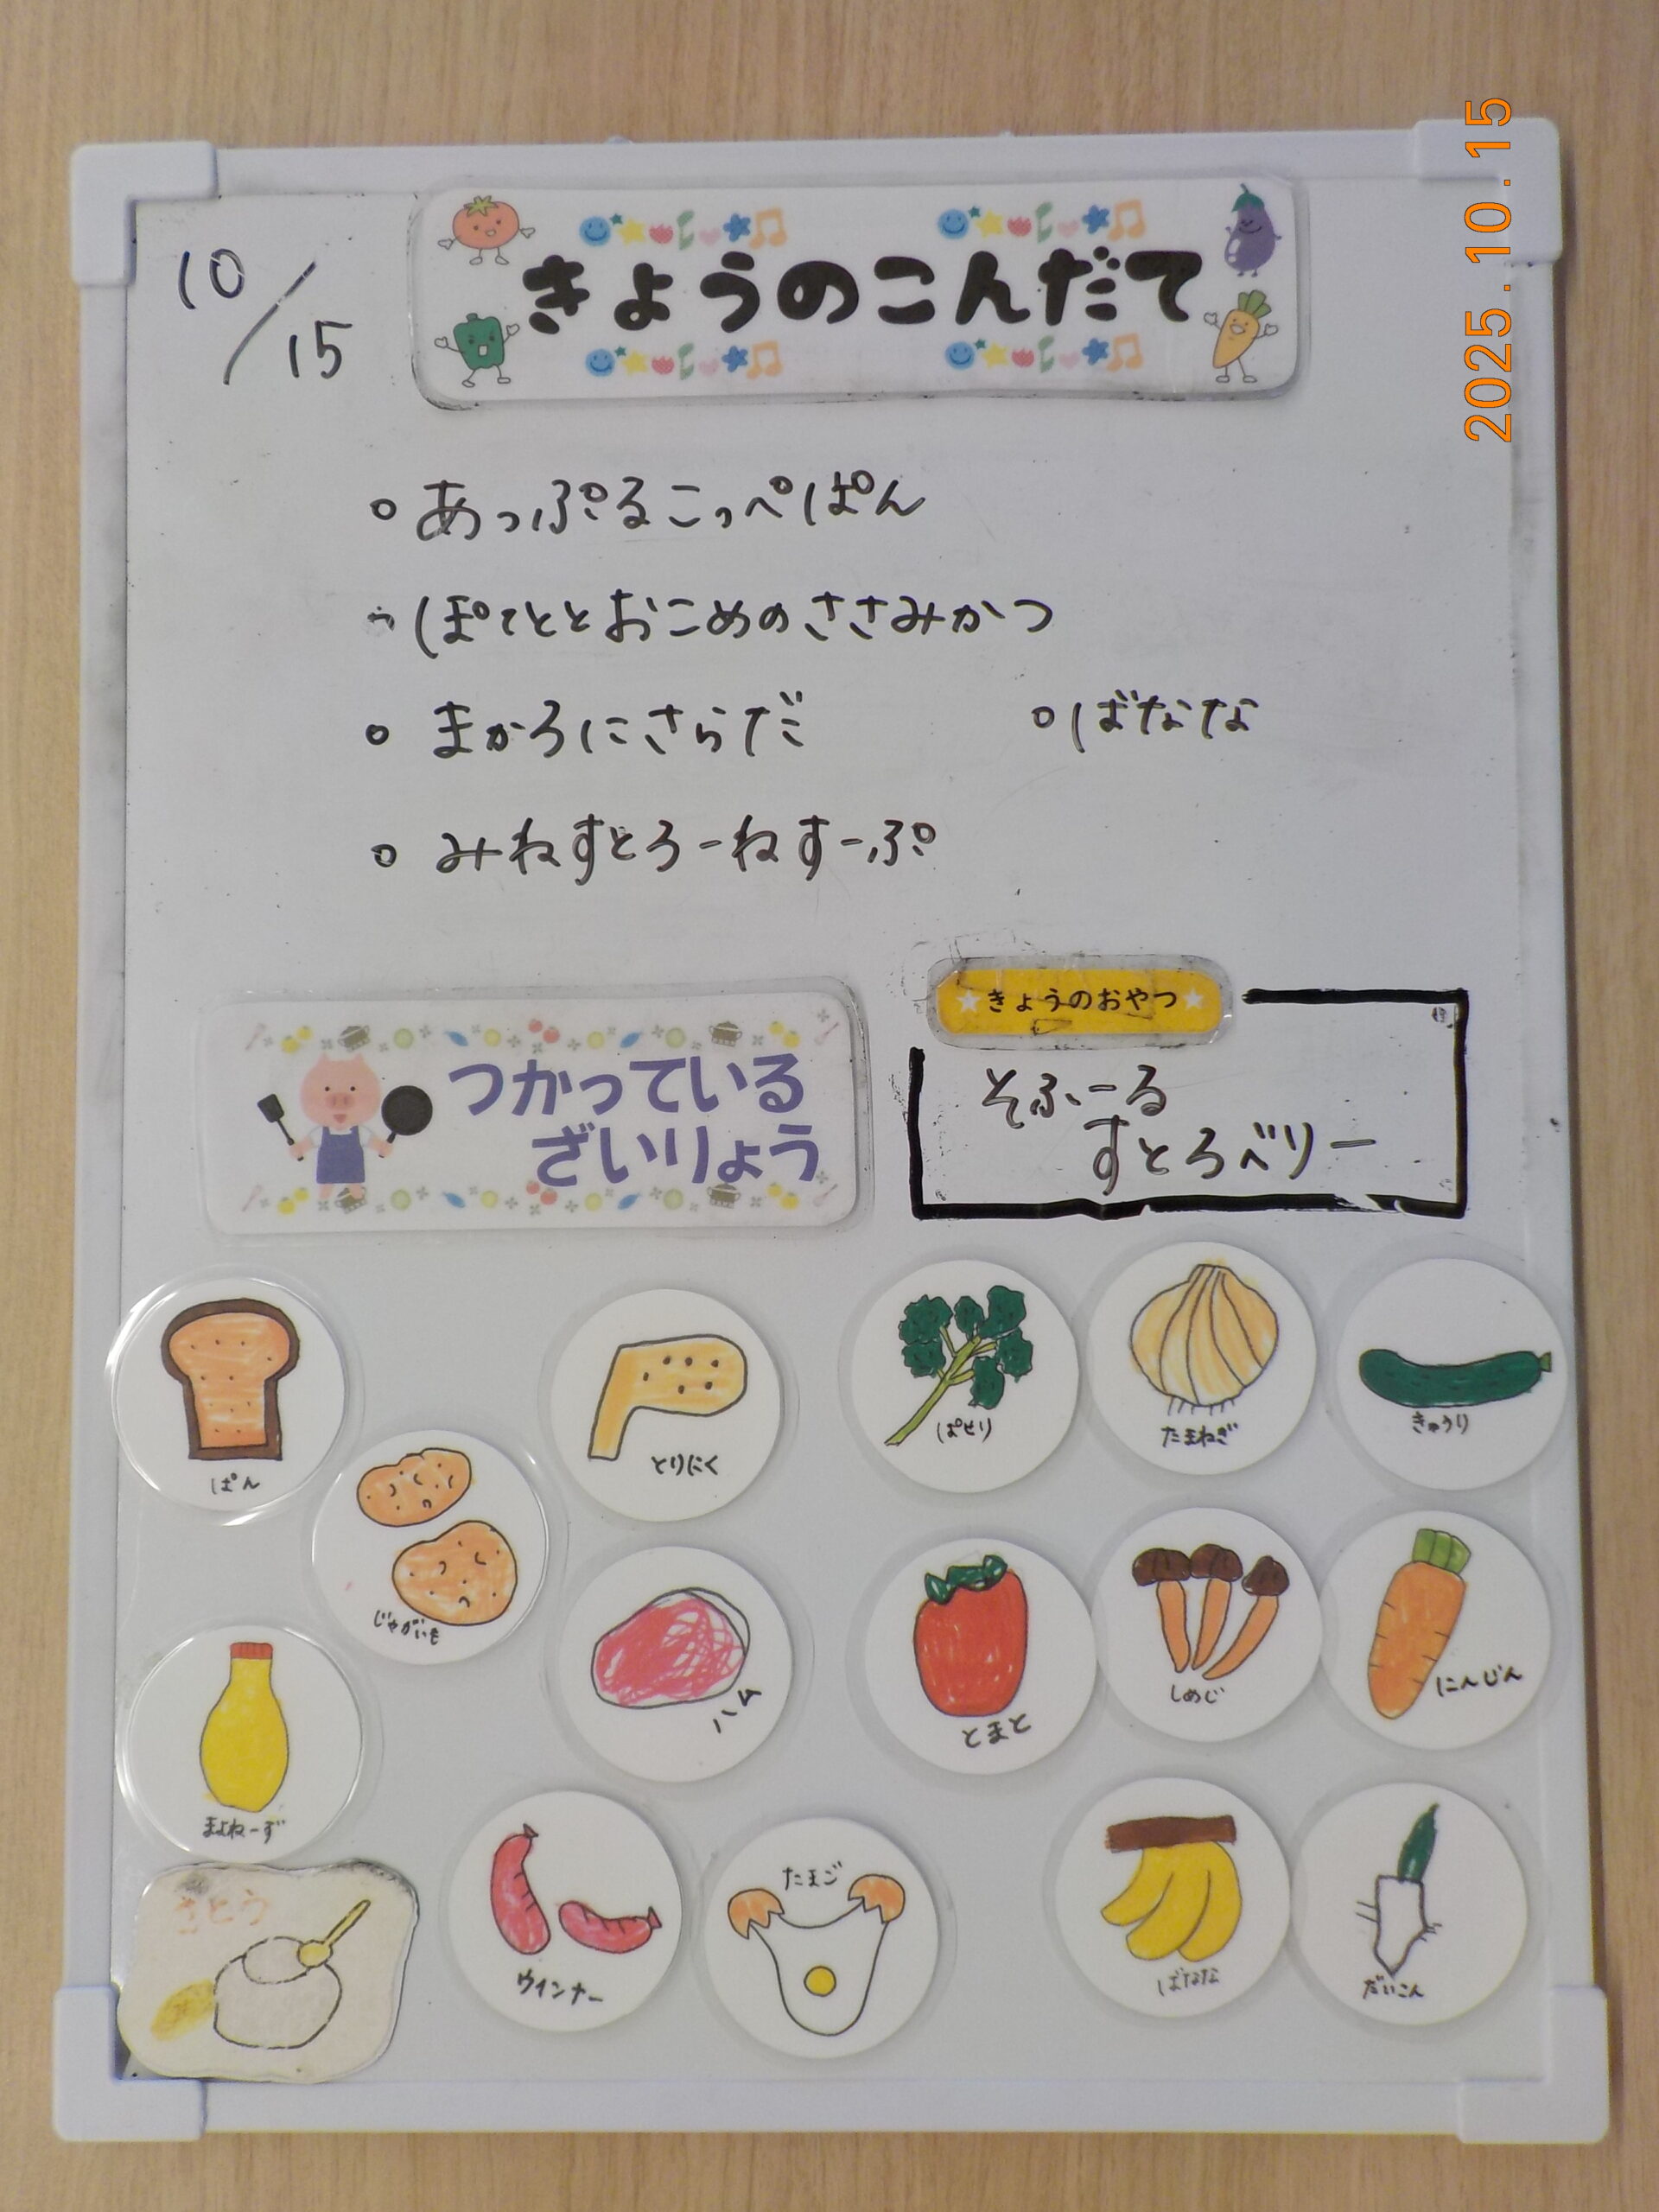 2025.10.15
10/15
きょうのこんだて
。あっぷるこっぺぱん
ぽてととおこめのささみかつ
。まかろにさらだ
。ばなな
。みねすとろーねすーぷ
★きょうのおやつ★
そふーる
すとろべりー
つかっている
ざいりょう
ぱん
とりにく
ぱせり
たまねぎ
きゅうり
じゃがいも
ハム
とまと
しめじ
にんじん
まよねーず
さとう
ウインナー
たまご
ばなな
だいこん